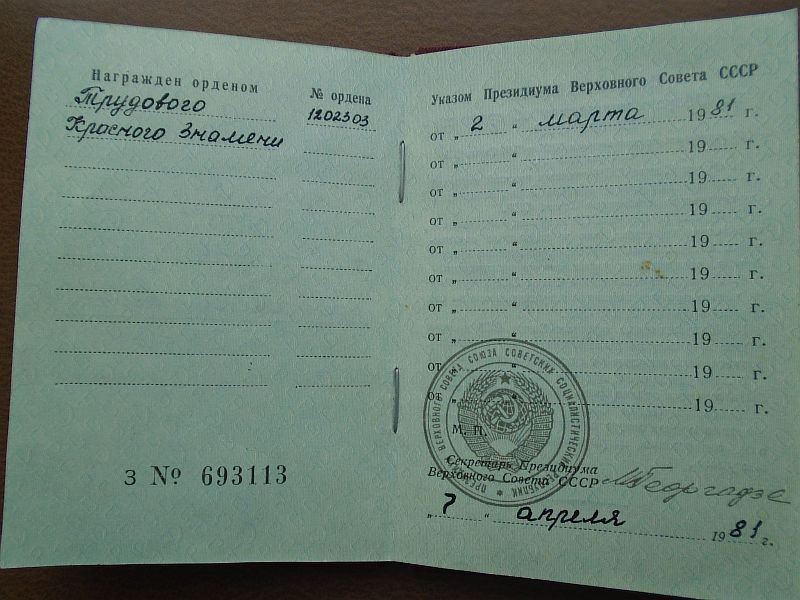 Награжден орденом
№ ордена
Трудового
1202303
Красного Знамени
З № 693113
Указом Президиума Верховного Совета СССР
от „ 2 “ марта 1981 г.
от „ “ 19 г.
от „ “ 19 г.
от „ “ 19 г.
от „ “ 19 г.
от „ “ 19 г.
от „ “ 19 г.
от „ “ 19 г.
от „ “ 19 г.
от „ “ 19 г.
М. П.
Секретарь Президиума
Верховного Совета СССР МГеоргадзе
„ 7 “ апреля 1981 г.
ПРЕЗИДИУМ ВЕРХОВНОГО СОВЕТА СОЮЗА СОВЕТСКИХ СОЦИАЛИСТИЧЕСКИХ РЕСПУБЛИК